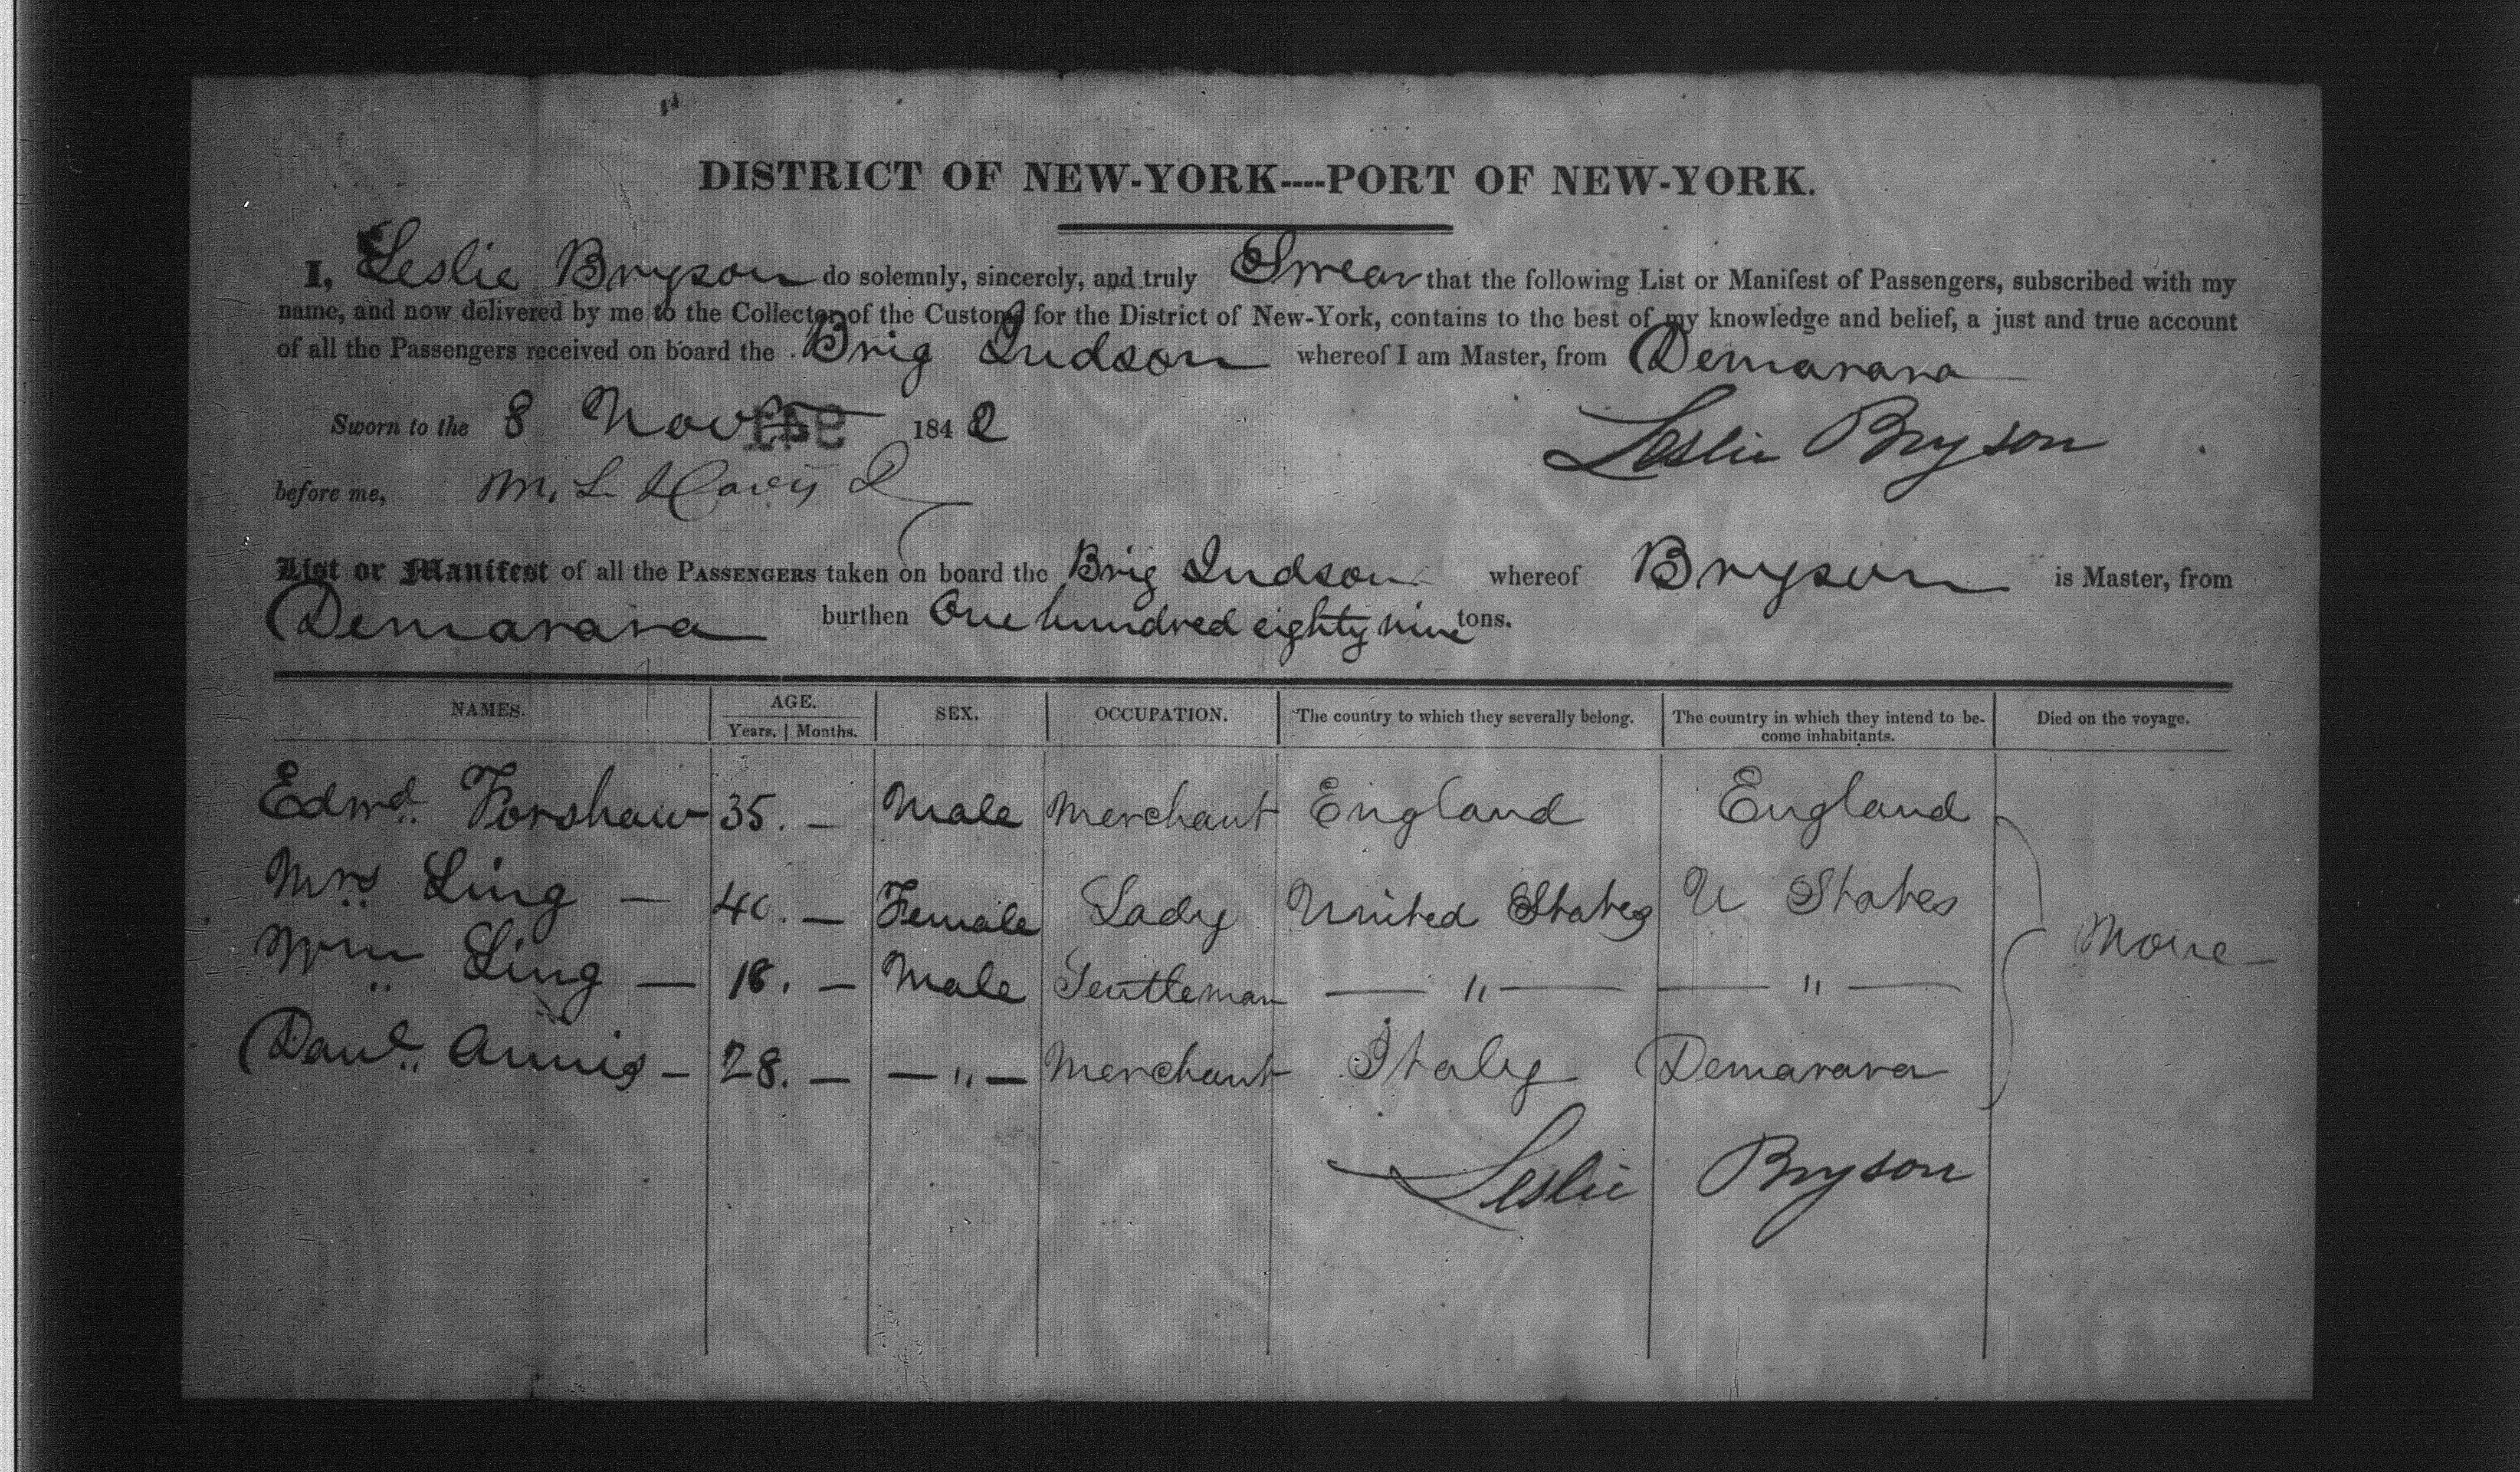 DISTRICT OF NEW-YORK----PORT OF NEW-YORK.
I, Leslie Bryson do solemnly, sincerely, and truly Swear that the following List or Manifest of Passengers, subscribed with my
name, and now delivered by me to the Collector of the Customs for the District of New-York, contains to the best of my knowledge and belief, a just and true account
of all the Passengers received on board the Brig Judson whereof I am Master, from Demarara
Sworn to the 8 Nov 1842
Leslie Bryson
before me, M. L. Davis
List or Manifest of all the PASSENGERS taken on board the Brig Judson whereof Bryson is Master, from
Demarara burthen One hundred eighty nine tons.
NAMES. AGE. SEX. OCCUPATION. The country to which they severally belong. The country in which they intend to be- Died on the voyage.
Years. | Months. come inhabitants.
Edwd. Forshaw 35. — Male Merchant England England
Mrs Ling — 40. — Female Lady United States U States
None
Wm Ling — 18. — Male Gentleman — " — — " —
Danl. Annis — 28. — — " — Merchant Italy Demarara
Leslie Bryson